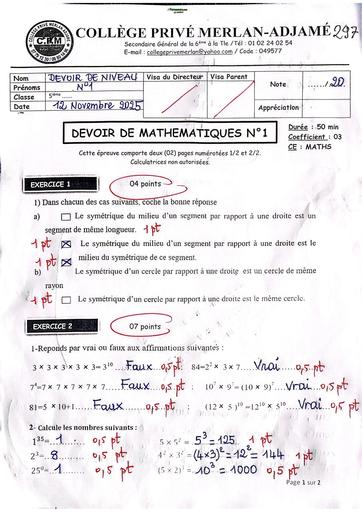 COLLÈGE PRIVÉ MERLAN-ADJAMÉ 297
Secondaire Général de la 6ème à la Tle /Tél : 01 02 24 02 54
E-mail : collegeprivemerlan@yahoo.com / Code : 049577
COLLEGE PRIVE MERLAN
CPM
Nom DEVOIR DE NIVEAU Visa du Directeur Visa Parent Note ....../20.
Prénoms N°1
Classe 5ème
Date 12 Novembre 2025 Appréciation :
DEVOIR DE MATHEMATIQUES N°1
Durée : 50 min
Coefficient : 03
CE : MATHS
Cette épreuve comporte deux (02) pages numérotées 1/2 et 2/2.
Calculatrices non autorisées.
EXERCICE 1 04 points
1) Dans chacun des cas suivants, coche la bonne réponse
a) ☐ Le symétrique du milieu d'un segment par rapport à une droite est un
segment de même longueur. 1 pt
1 pt ☒ Le symétrique du milieu d'un segment par rapport à une droite est le
1 pt ☒ milieu du symétrique de ce segment.
b) Le symétrique d'un cercle par rapport à une droite est un cercle de même
rayon
1 pt ☐ Le symétrique d'un cercle par rapport à une droite est le même cercle.
EXERCICE 2 07 points
1-Reponds par vrai ou faux aux affirmations suivantes :
3 × 3 × 3 × 3 = 3¹⁰ ....Faux...0,5pt 84=2² × 3 × 7.....Vrai....0,5 pt
7⁴=7 × 7 × 7 × 7......Faux......0,5pt ; 10⁷ × 9⁷=(10 × 9)⁷...Vrai...0,5 pt
81=5 × 10+1......Faux........0,5pt ; (12 × 5 )¹⁰=12¹⁰ × 5¹⁰....Vrai..0,5 pt
2- Calcule les nombres suivants :
1³⁵=...1.... 0,5 pt 5 × 5² = 5³=125 1 pt
2³=...8..... 0,5 pt 4² × 3² =(4×3)²=12²= 144 1 pt
25⁰=....1.... 0,5 pt (5 × 2)³ =..10³ = 1000 0,5 pt
Page 1 sur 2